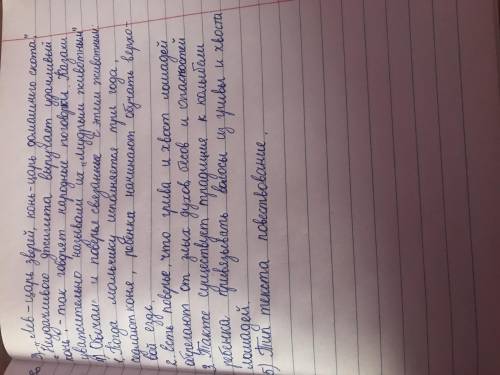 3. „Лев - царь зверей, конь - царь домашнего скота",
„Неудачливого джигита выручает удачливый
конь" - так говорят народные поговорки. Казахи
уважительно называли их „Мудрым животным"
4) Обычаи и поверья связанные с этим животным:
1. Когда мальчику исполняется три года,
седлают коня, ребёнка начинают обучать верхо-
вой езде.
2. есть поверье, что грива и хвост лошадей
оберегают от злых духов бесов и опасностей
3. Также существует традиция к колыбели
ребёнка привязывать волосы из гривы и хвоста
лошадей.
5) Тип текста повествование.